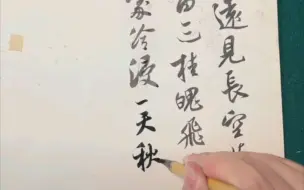 遠見長空
三桂魄飛
冷浸一天秋